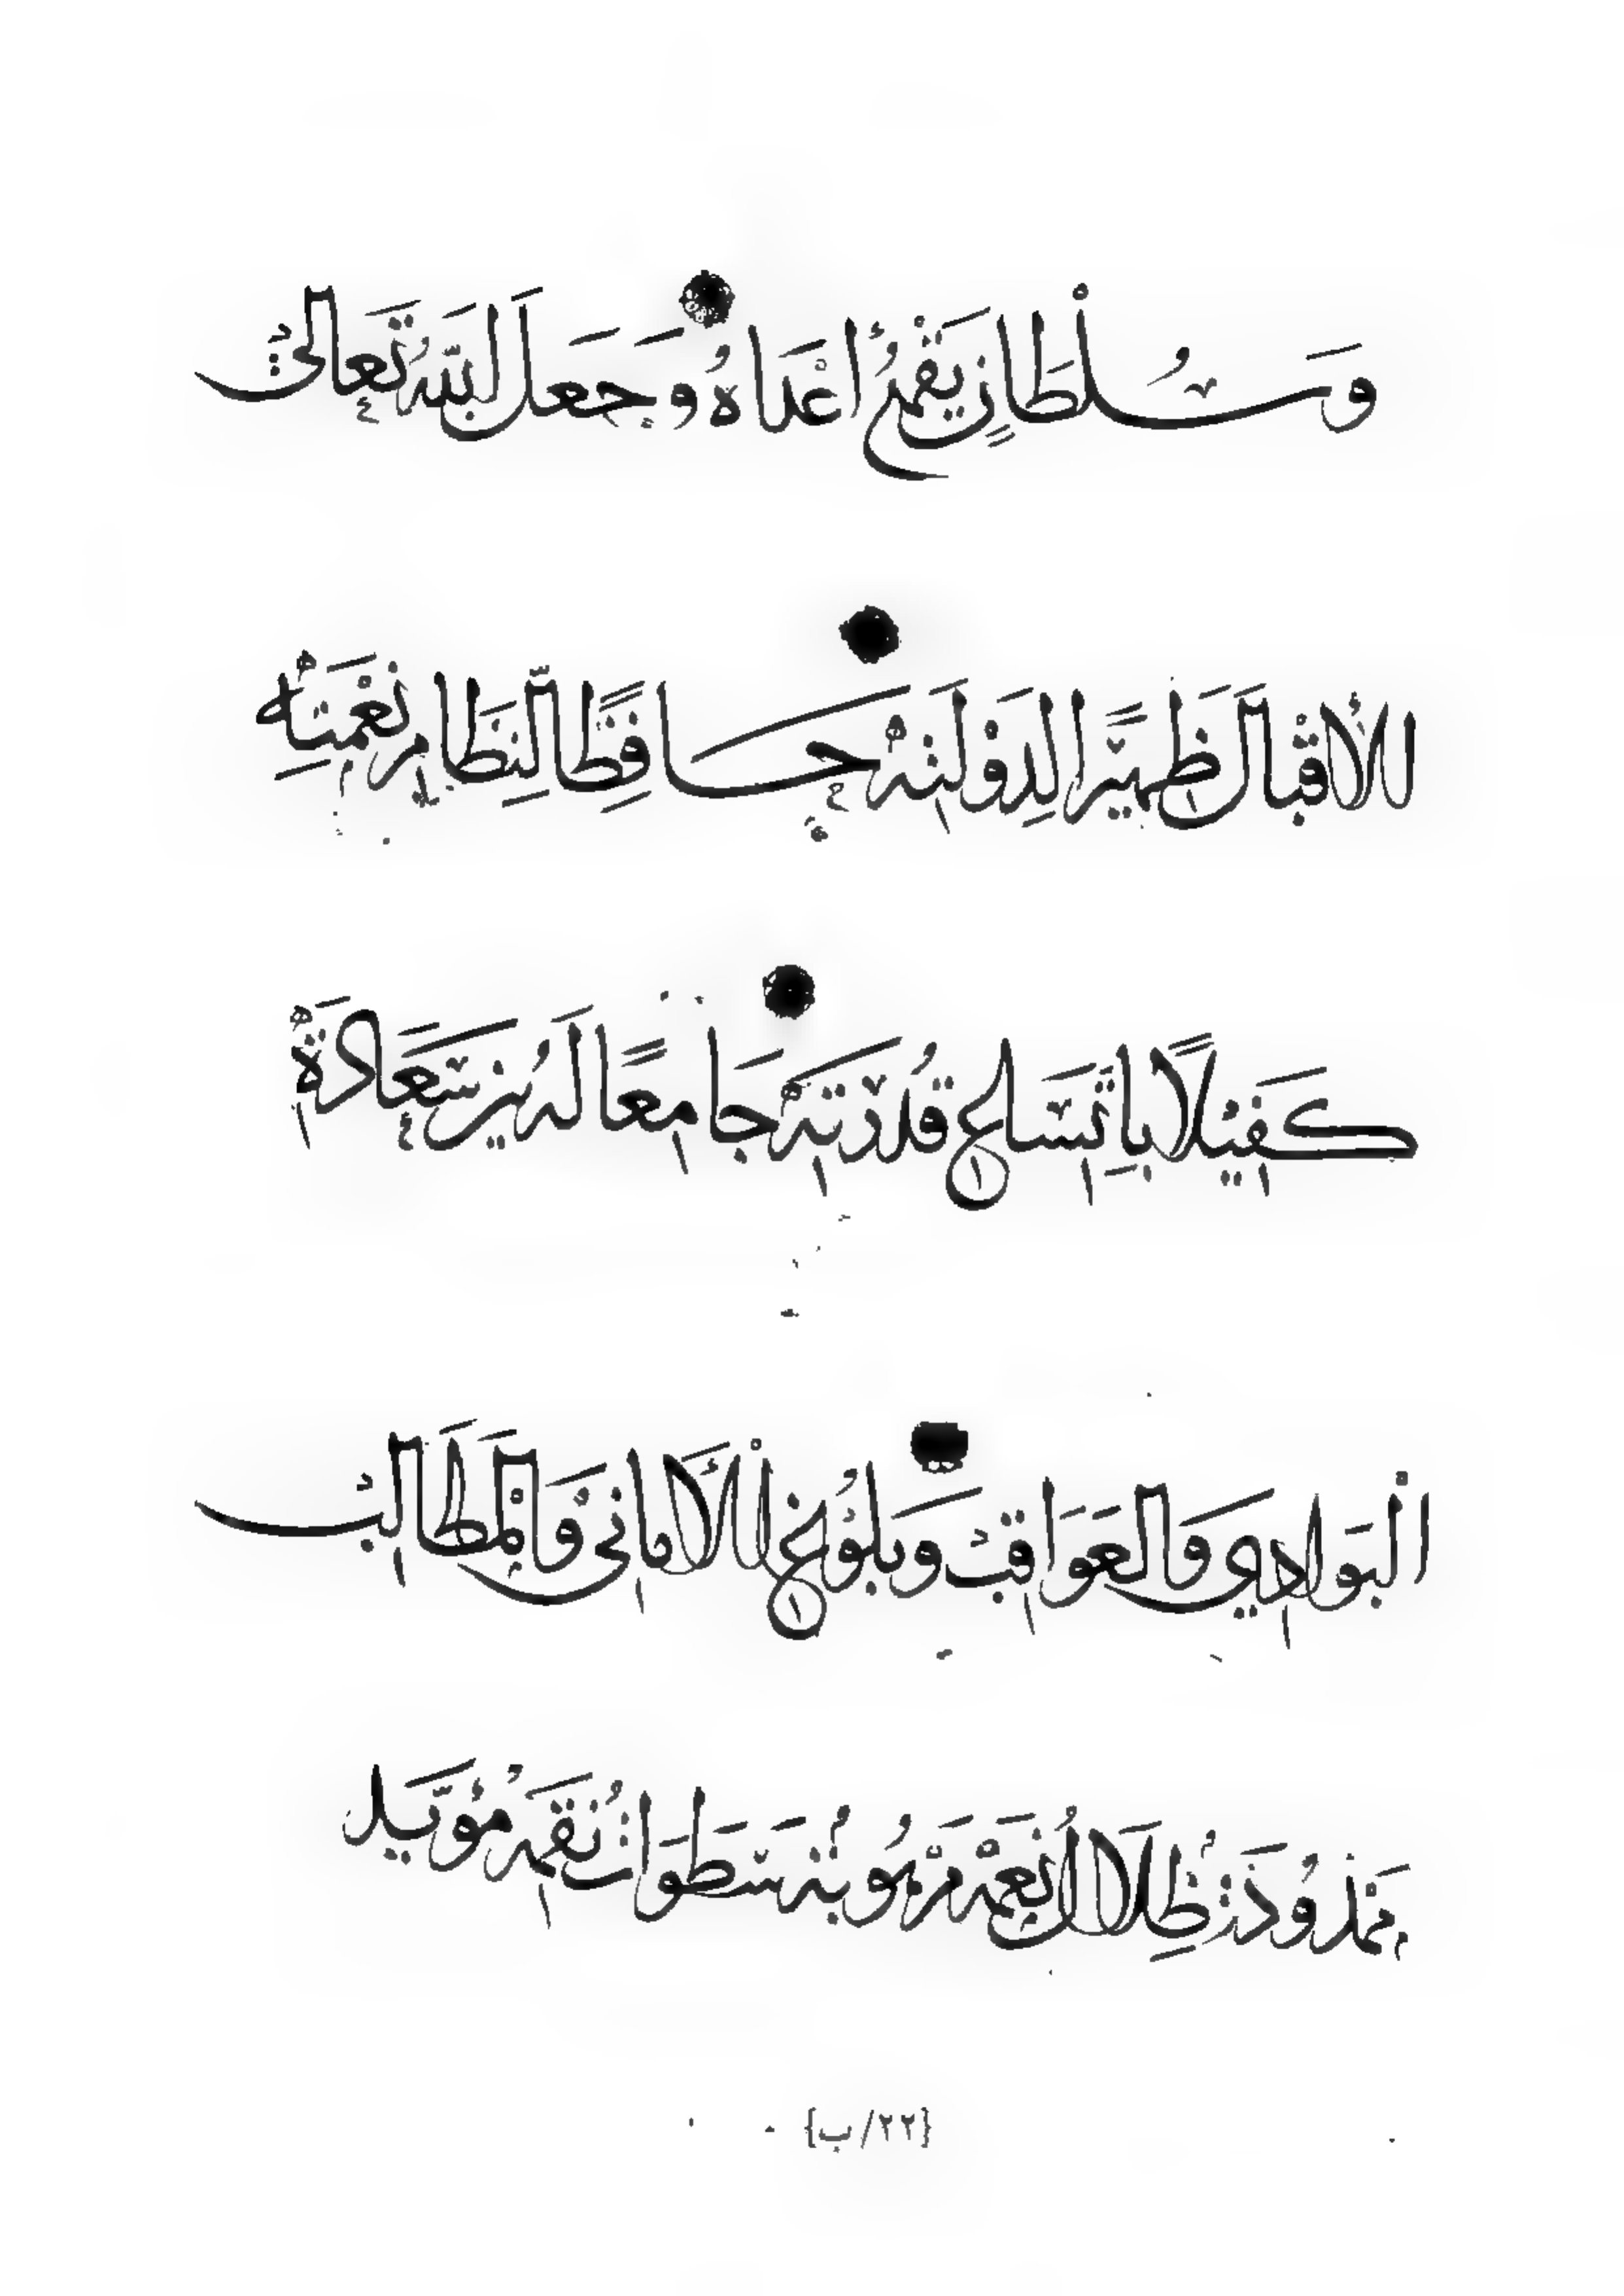 وَسُلْطَانٍ يَقْمَعُ أَعْدَاهُ وَجَعَلَ اللّٰهُ تَعَالَى
الْإِقْبَالَ ظَهِيرًا لِدَوْلَتِهِ حَافِظًا لِنِظَامِ نِعْمَتِهِ
كَفِيلًا بِاتِّسَاعِ قُدْرَتِهِ جَامِعًا لَهُ بَيْنَ سَعَادَةِ
الْبَوَادِي وَالْعَوَاقِبِ وَبُلُوغِ الْأَمَانِي وَالْمَطَالِبِ
ظِلَالُ نِعَمِهِ مَرْهُوبَةٌ سَطَوَاتُ نِقَمِهِ مُؤَيَّد
{٢٢/ب}